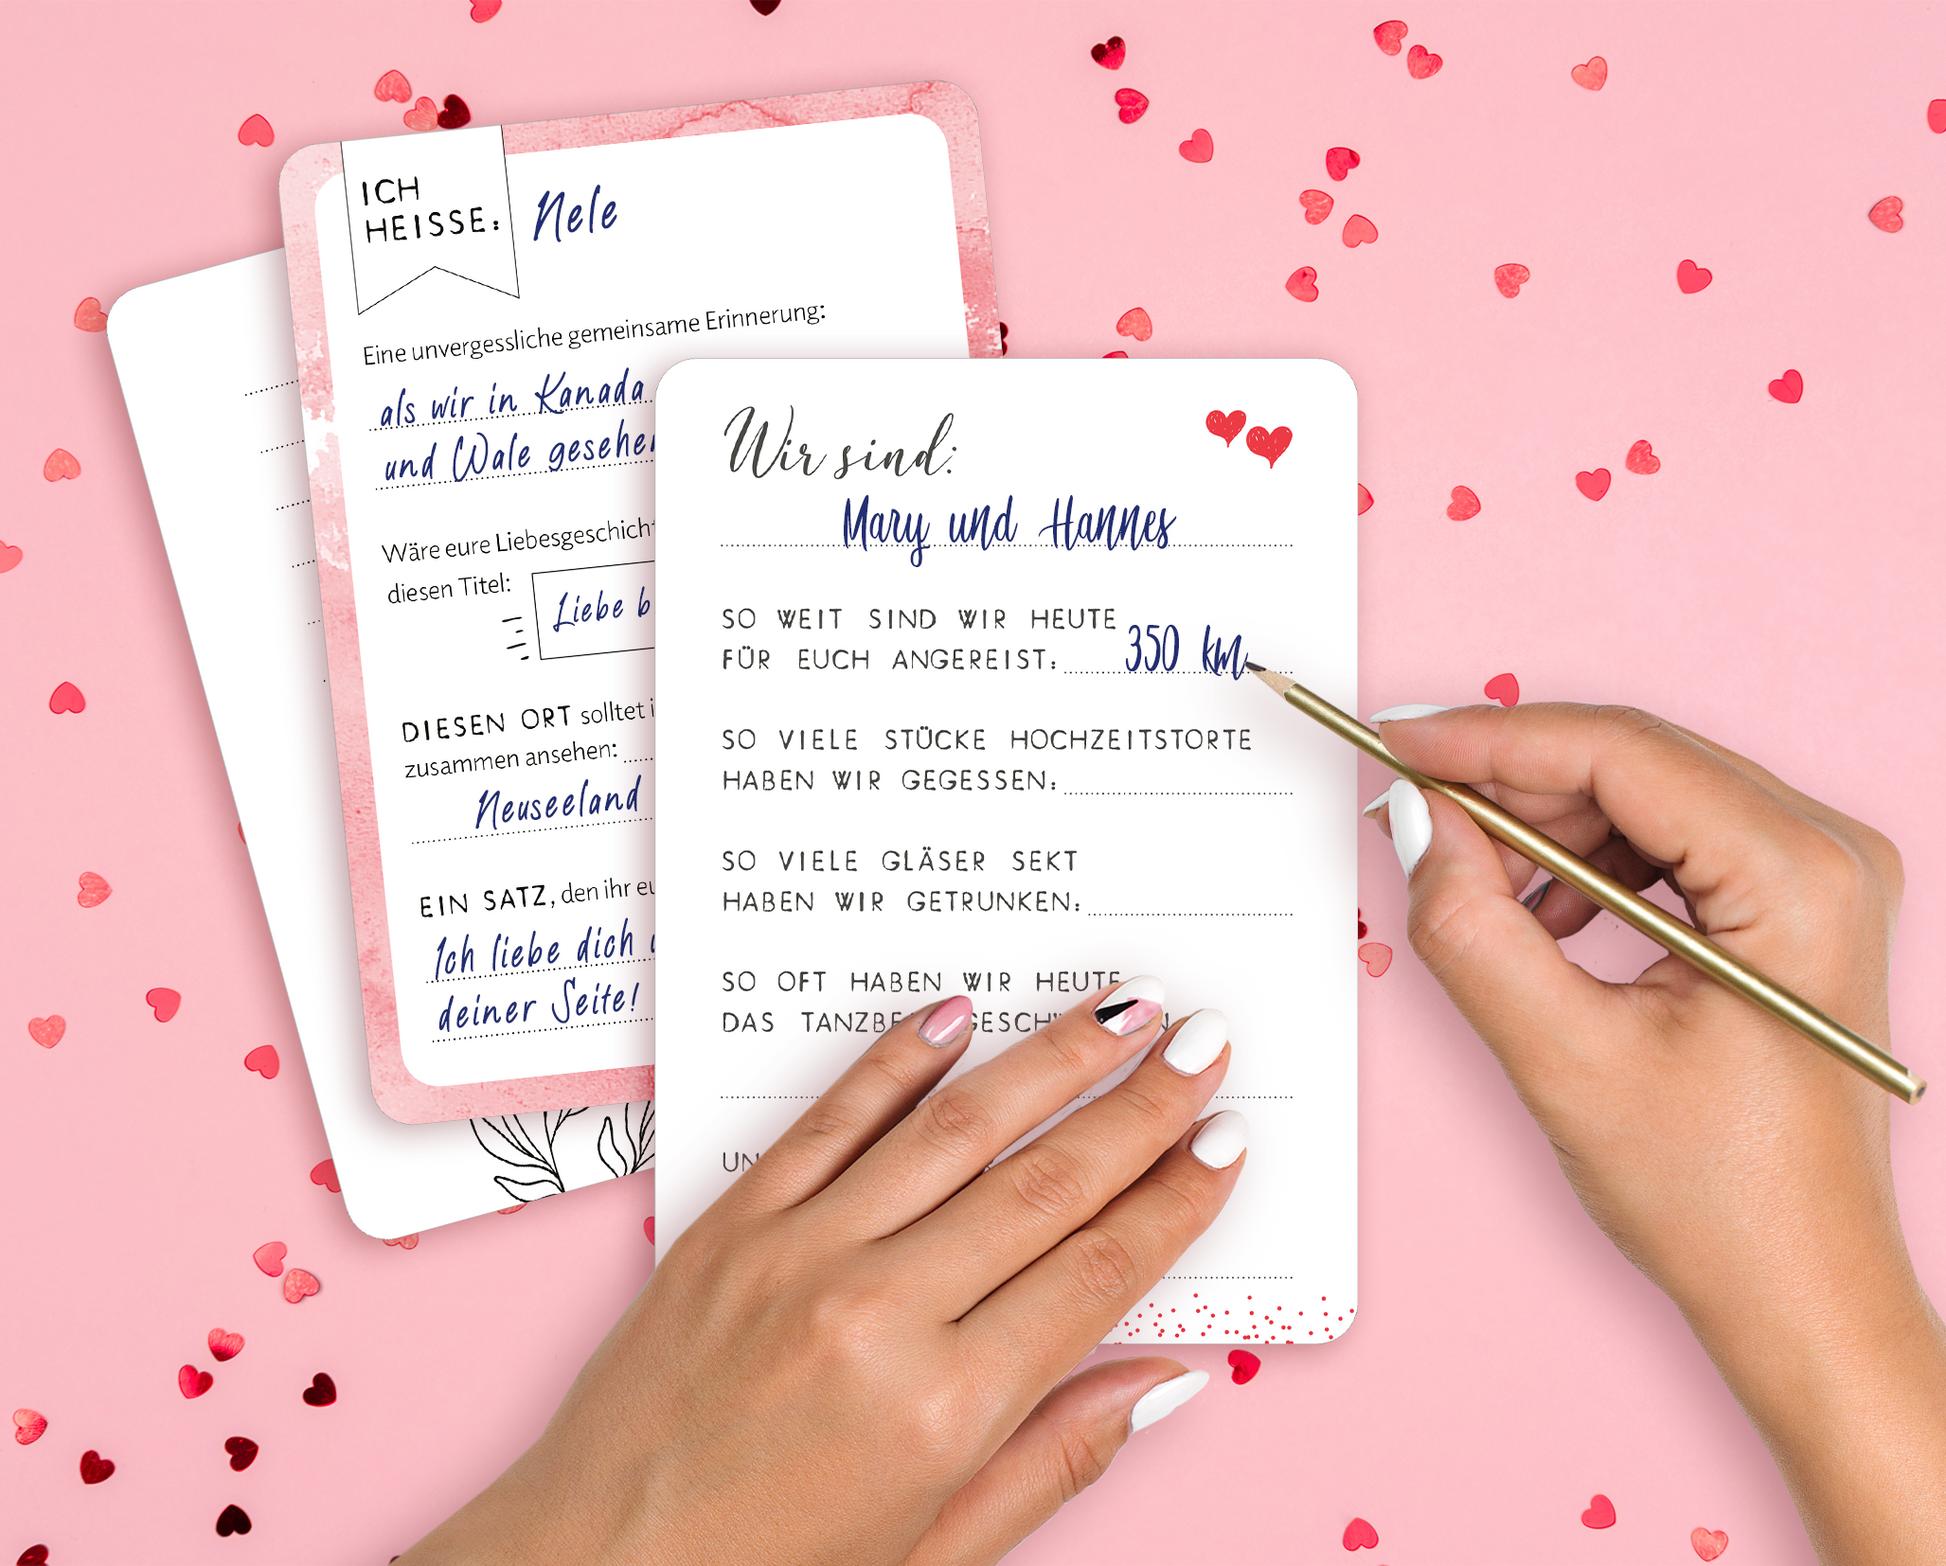 ICH
HEISSE:
Nele
Eine unvergessliche gemeinsame Erinnerung:
als wir in Kanada
und Wale
Wäre eure
diesen Titel:
Liebe
DIESEN ORT solltet
zusammen ansehen:
Neuseeland
EIN SATZ, den ihr
Ich liebe dich
deiner Seite!
Wir sind:
Mary und Hannes
SO WEIT SIND WIR HEUTE
FÜR EUCH ANGEREIST: 350 km
SO VIELE STÜCKE HOCHZEITSTORTE
HABEN WIR GEGESSEN:
SO VIELE GLÄSER SEKT
HABEN WIR GETRUNKEN:
SO OFT HABEN WIR HEUTE
DAS